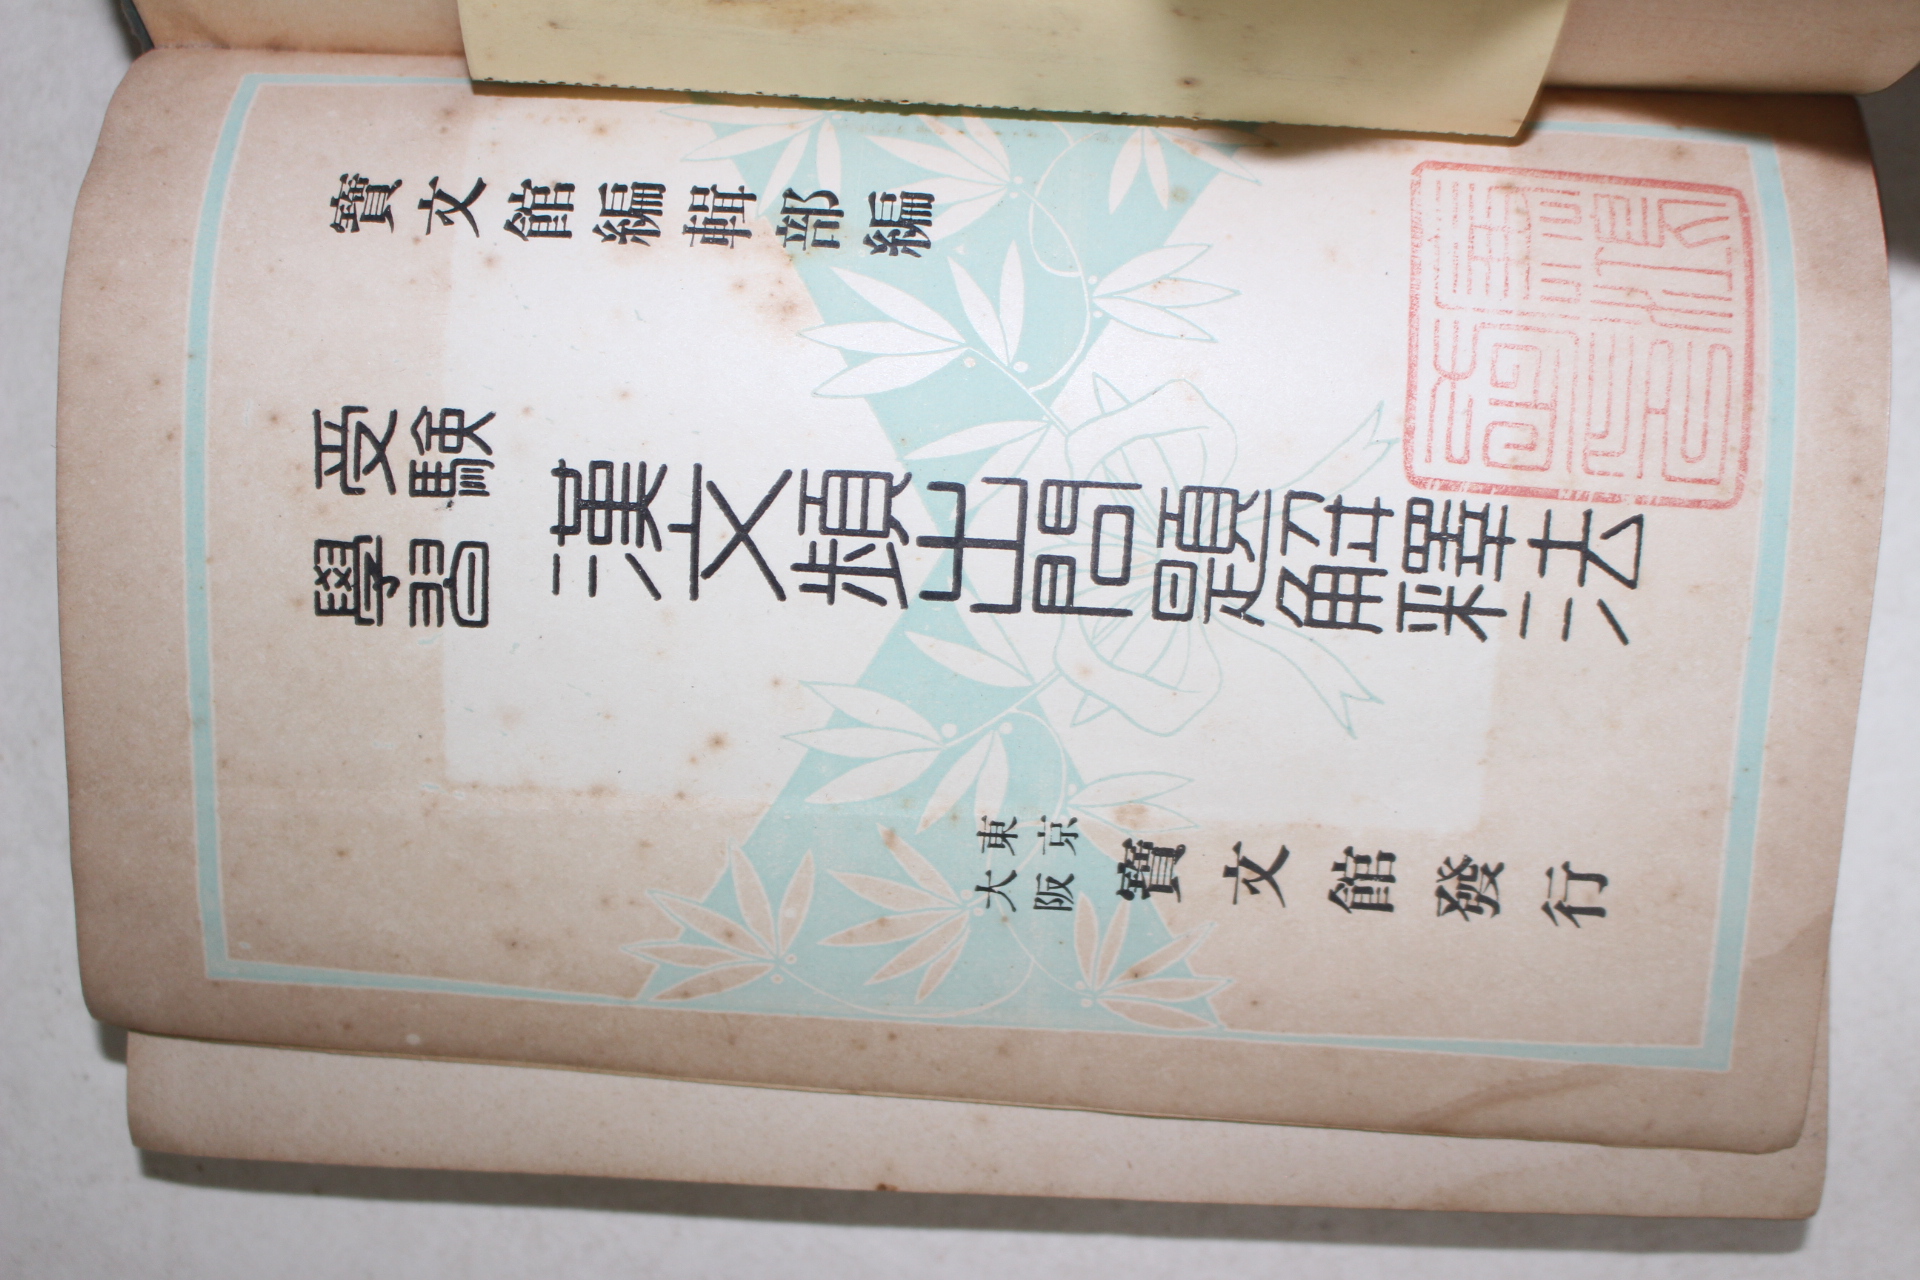 寶文館編輯部編
受驗
學習
漢文頻出問題解釋法
東京
大阪
寶文館發行